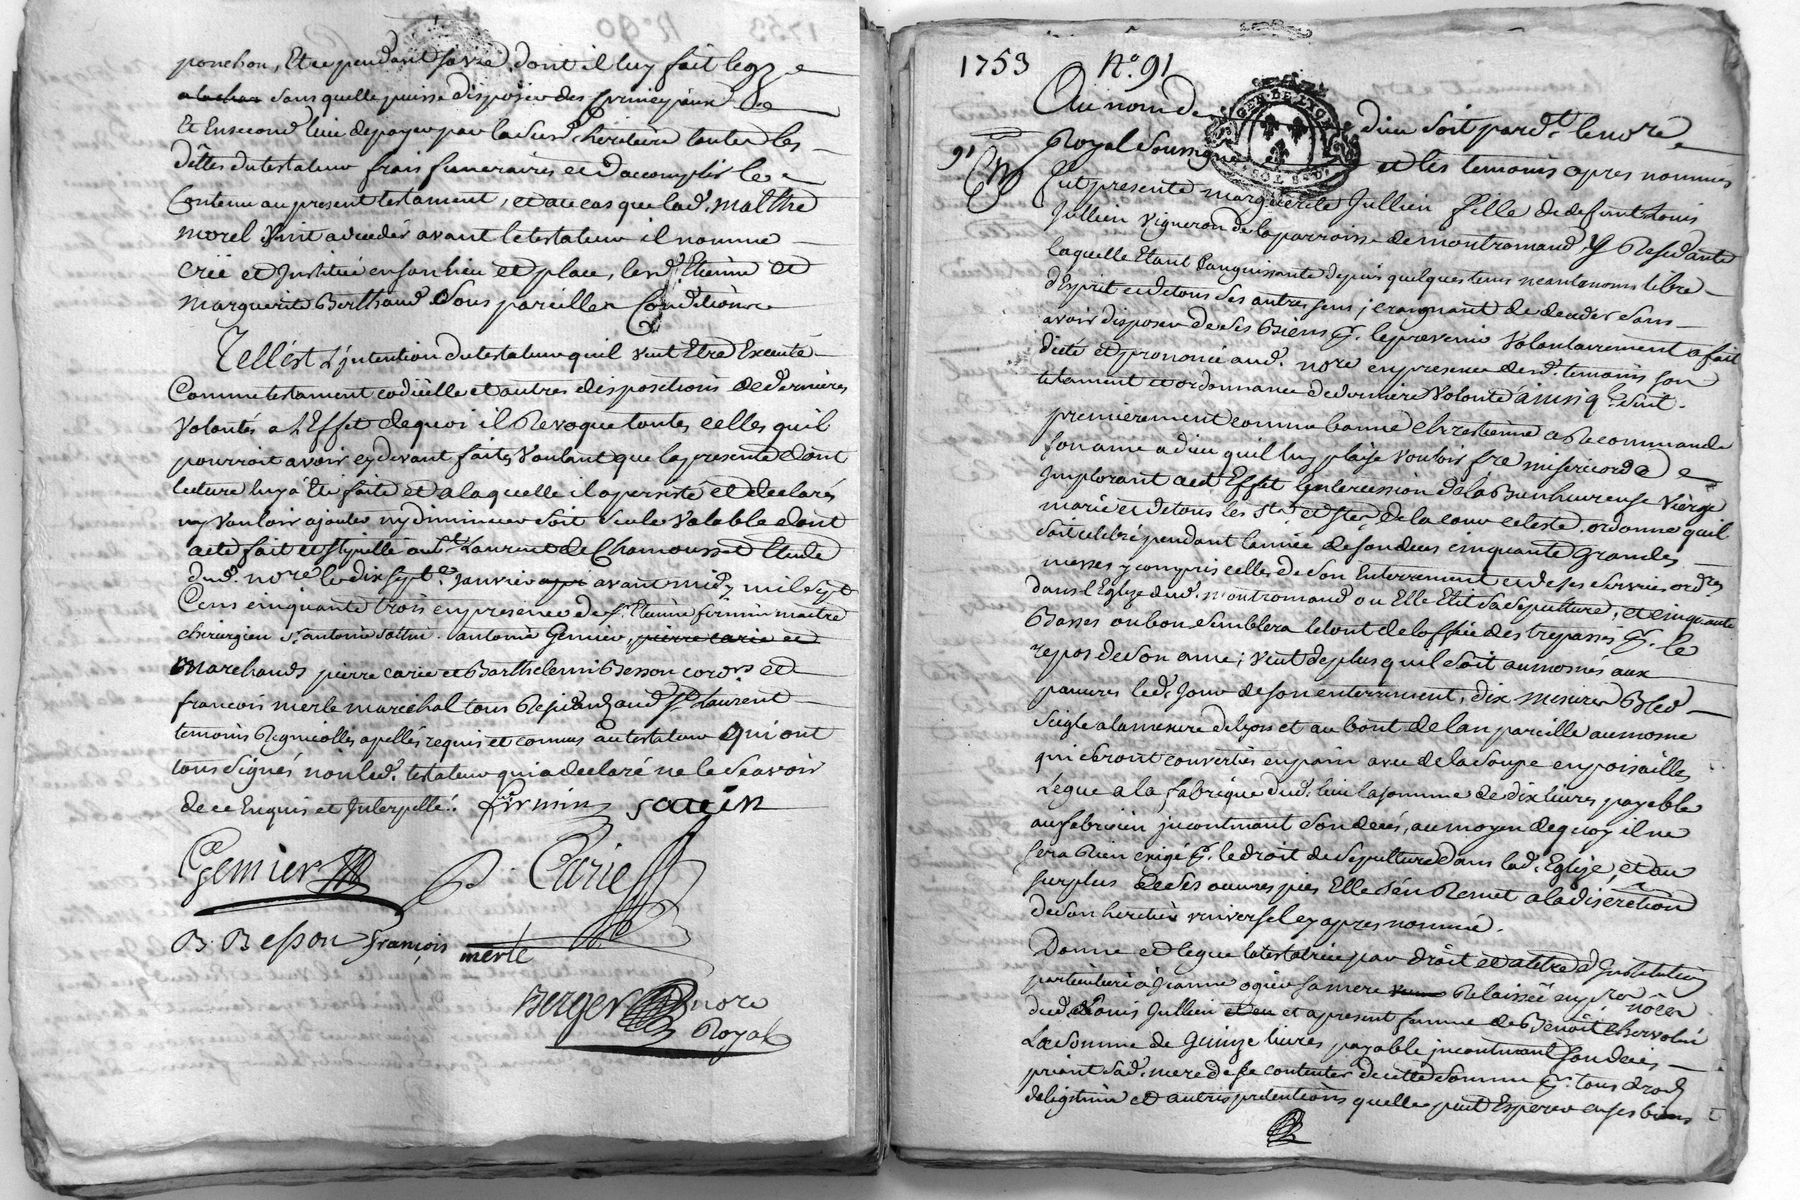 ponchon, Et ce pendant sa vie, dont il luy fait legs
sans quelle puisse disposer des
Et En second lieu de payer par lad. sus.d héritière toutes les
dêttes du testateur frais funeraires et d'accomplir le
Contenu au present testament, et au cas que lad. matthe
morel vint a deceder avant le testateur il nomme
crée et Institue en son lieu et place, les d. Etienne et
marguerite Berthaud sous pareilles Conditions
Telle est L'jntention du testateur qu'il veut Etre Executé
Comme testament codicille et autres dispositions de dernieres
Volontés a L'Effet de quoi il Revoque toutes celles qu'il
pourroit avoir cy devant faites Voulant que la presente dont
lecture luy à Eté faite et a laquelle il a persisté et declaré
ny vouloir ajouter ny diminuer soit seule valable dont
acte fait et stipullé aud. St Laurent de Chamousset Etude
dud. nore le dix sept.e janvier avant midy mil sept
Cens cinquante trois en presence de sr. Etienne firmin maitre
chirurgien sr. antoine sottin antoine Gemier, pierre carie et
Marchands pierre carie et Barthelemi Besson cord.rs et
francois merle maréchal tous Residants aud. St Laurent
temoins Regnicolles apellés requis et connus au testateur qui ont
tous signés non led. testateur qui a declaré ne le sçavoir
de ce Enquis et Interpellé.
firmin
Gemier P. Carie
B. Besson françois merle
Berger nore
Royal
1753 No. 91
Au nom de dieu soit pard.t le nore
91
Royal Soussigné et les temoins apres nommés
GEN. DE LYON
Fut presente marguerite Jullien fille de defunt Louis
Jullien Vigneron de la parroisse de montromand y Residante
laquelle Etant Languissante depuis quelques tems neantmoins libre
d'Esprit et de tous ses autres sens; craignant de deceder sans
avoir disposer de ses Biens pr. le prevenir Volontairement a fait
dicté et prononcé aud. nore en presence desd. temoins son
testament et ordonnance de derniere Volonté ainsi q. suit.
premierement comme bonne chrestienne a Recommandé
son ame a dieu qu'il luy plaise vouloir fre misericorde
Implorant a cet Effet Lintercession de la Bienheureuse Vièrge
marie et de tous les sts. et stes. de la cour celeste. ordonne qu'il
soit célébré pendant l'année de son deces cinquante grandes
messes y compris celles de son Enterrement et de ses services ord.res
dans l'Eglise dud. montromand ou Elle Elit sa sepulture, et cinquante
Basses ou bon semblera le tout de l'office des trepassés pr. le
repos de son ame; veut de plus qu'il soit aumosnés aux
pauvres led. Jour de son enterrement, dix mesures Bled
Seigle a la mesure de lyon et au bout de l'an pareille aumosne
qui seront converties en pain avec de la soupe en poisailles
Legue a la fabrique dud. lieu la somme de dix livres payable
au fabricien jncontinant son deces, au moyen de quoy il ne
sera Rien exigé pr. le droit de sepulture dans lad. Eglise, et au
surplus de ses œuvres pies Elle s'en Remet a la discrétion
de son heritier universel cy apres nommé.
Donne et legue la testatrice par droit et a titre d'Institution
particuliere à Jeanne ogier sa mere Relaissée en p.res noces
dud. Louis Jullien et a present femme de Benoit
La somme de quinze livres payable jncontinant son deces
priant sad. mere de se contenter de cette somme pr. tous droits
de légitime et autres pretentions quelle peut Esperer en ses biens